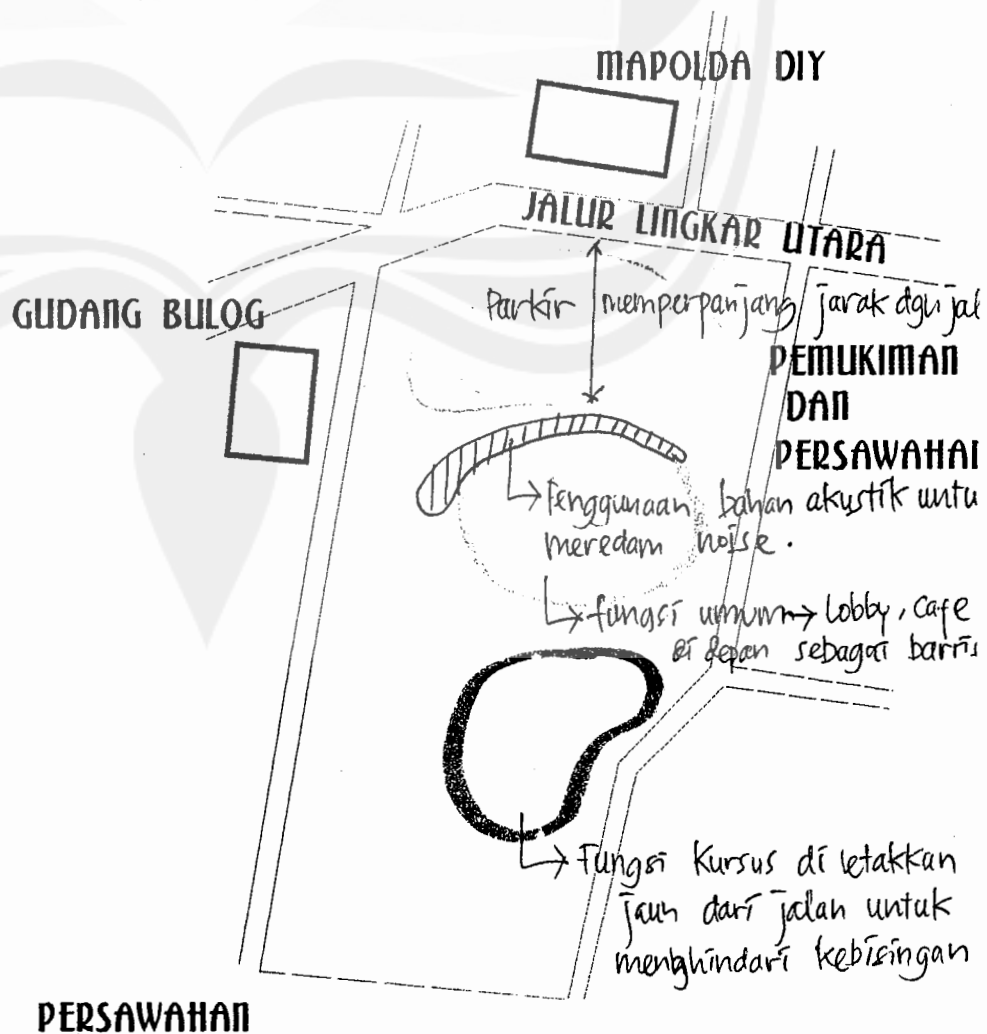 MAPOLDA DIY
JALUR LINGKAR UTARA
GUDANG BULOG
Parkir memperpanjang jarak dgn jal
PEMUKIMAN
DAN
PERSAWAHAN
Penggunaan bahan akustik untu
meredam noise.
fungsi umum → lobby, cafe
di depan sebagai barris
Fungsi Kursus di letakkan
jauh dari jalan untuk
menghindari kebisingan
PERSAWAHAN